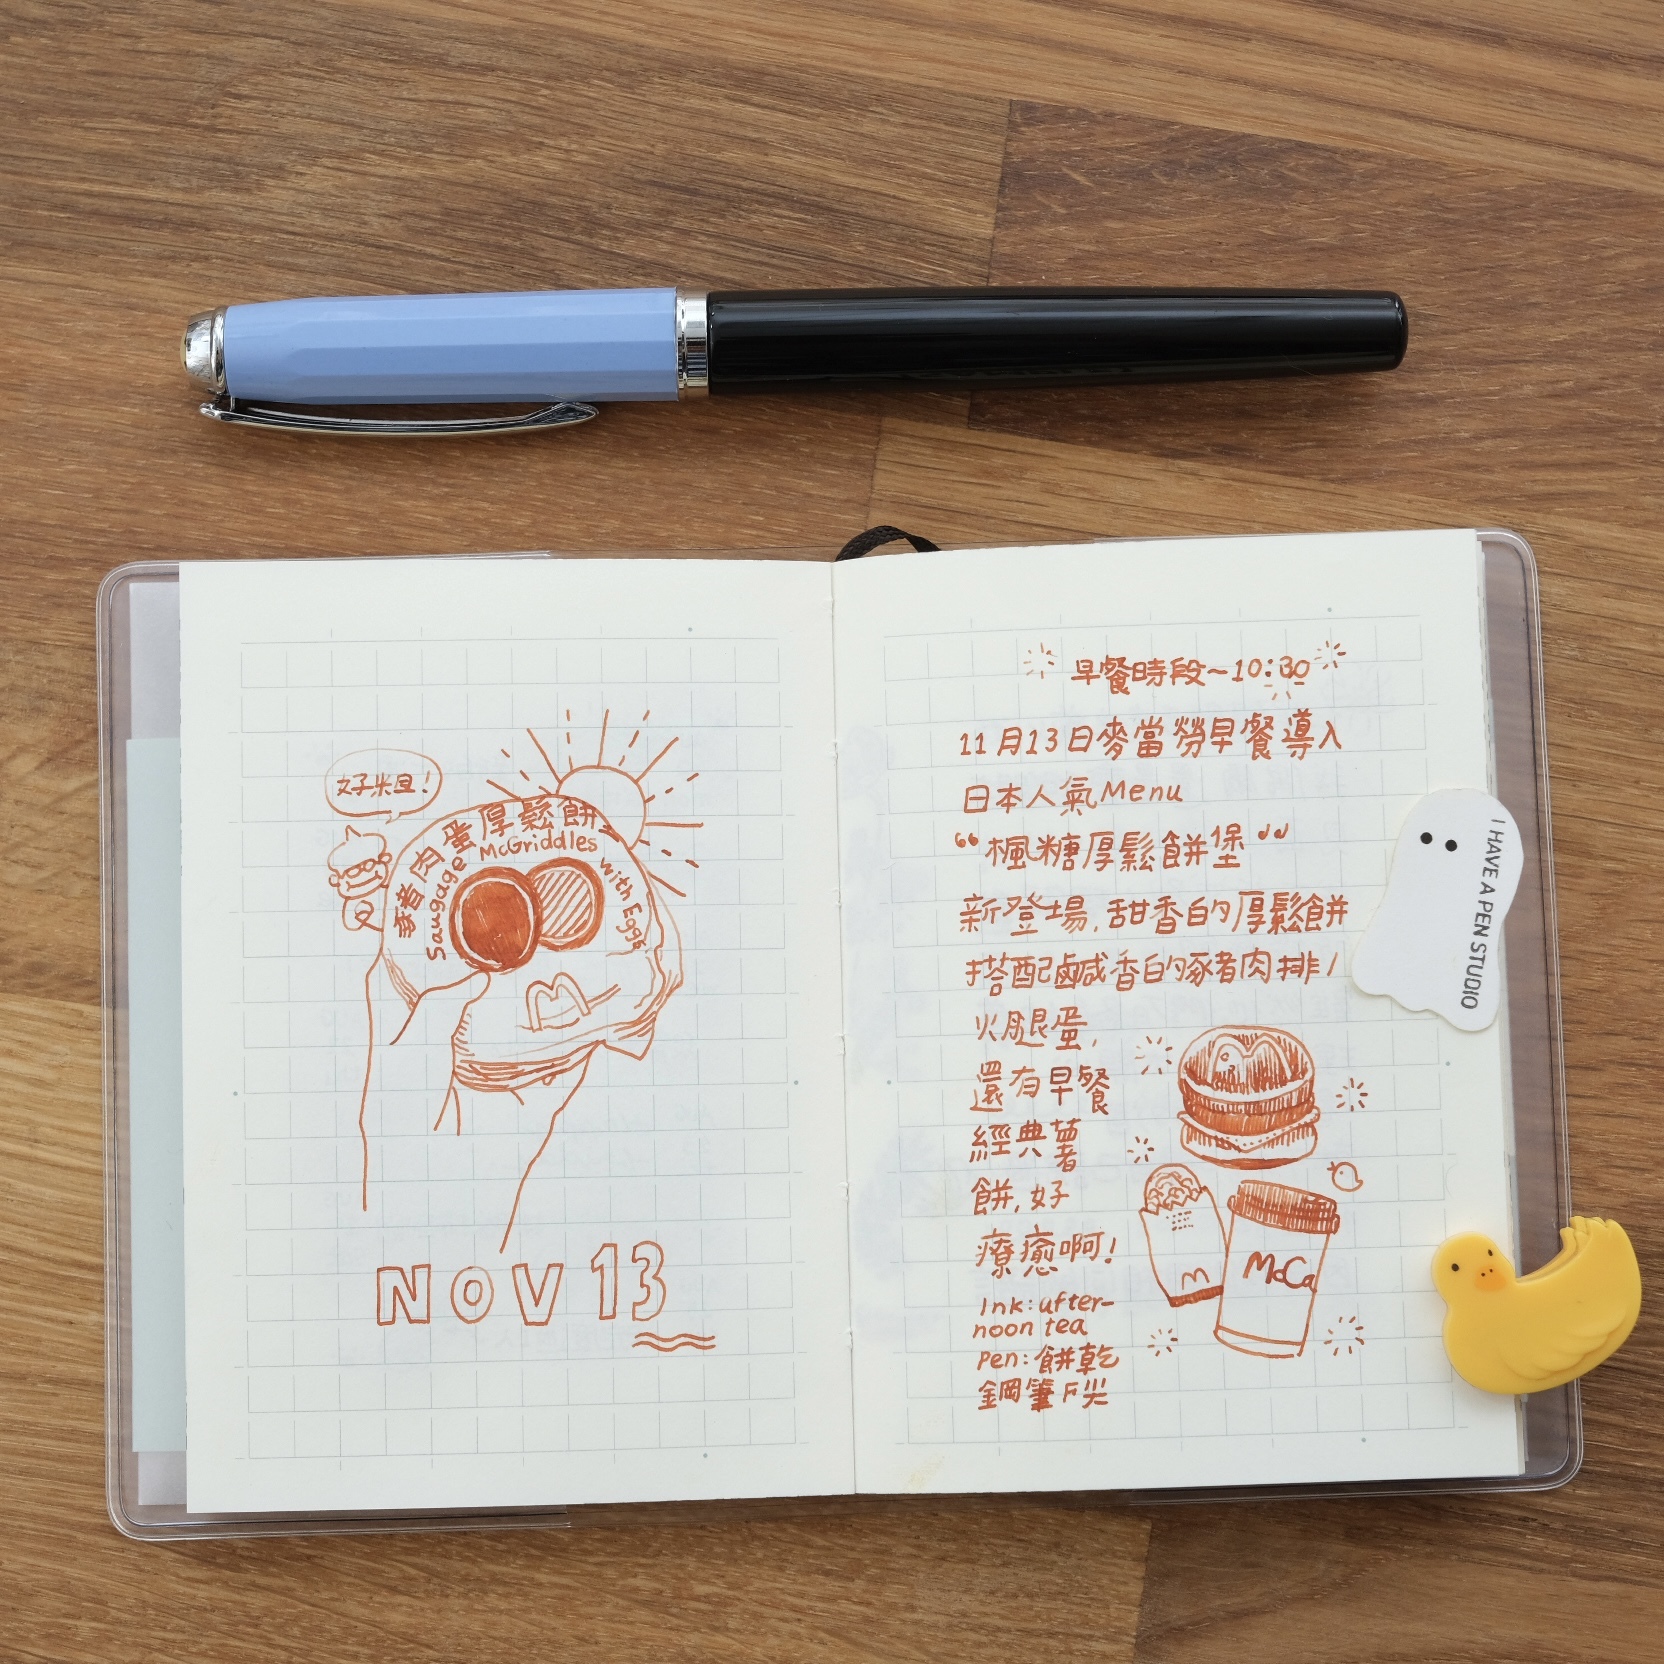 好米旦!
豬肉蛋厚鬆餅
Sausage McGriddles with Egg
NOV 13
早餐時段~10:30
11月13日麥當勞早餐導入
日本人氣Menu
“楓糖厚鬆餅堡”
新登場,甜香的厚鬆餅
搭配鹹香的豬肉排/
火腿蛋,
還有早餐
經典薯
餅,好
療癒啊!
Ink:after-
noon tea
Pen:餅乾
鋼筆F尖
McCa
I HAVE A PEN STUDIO